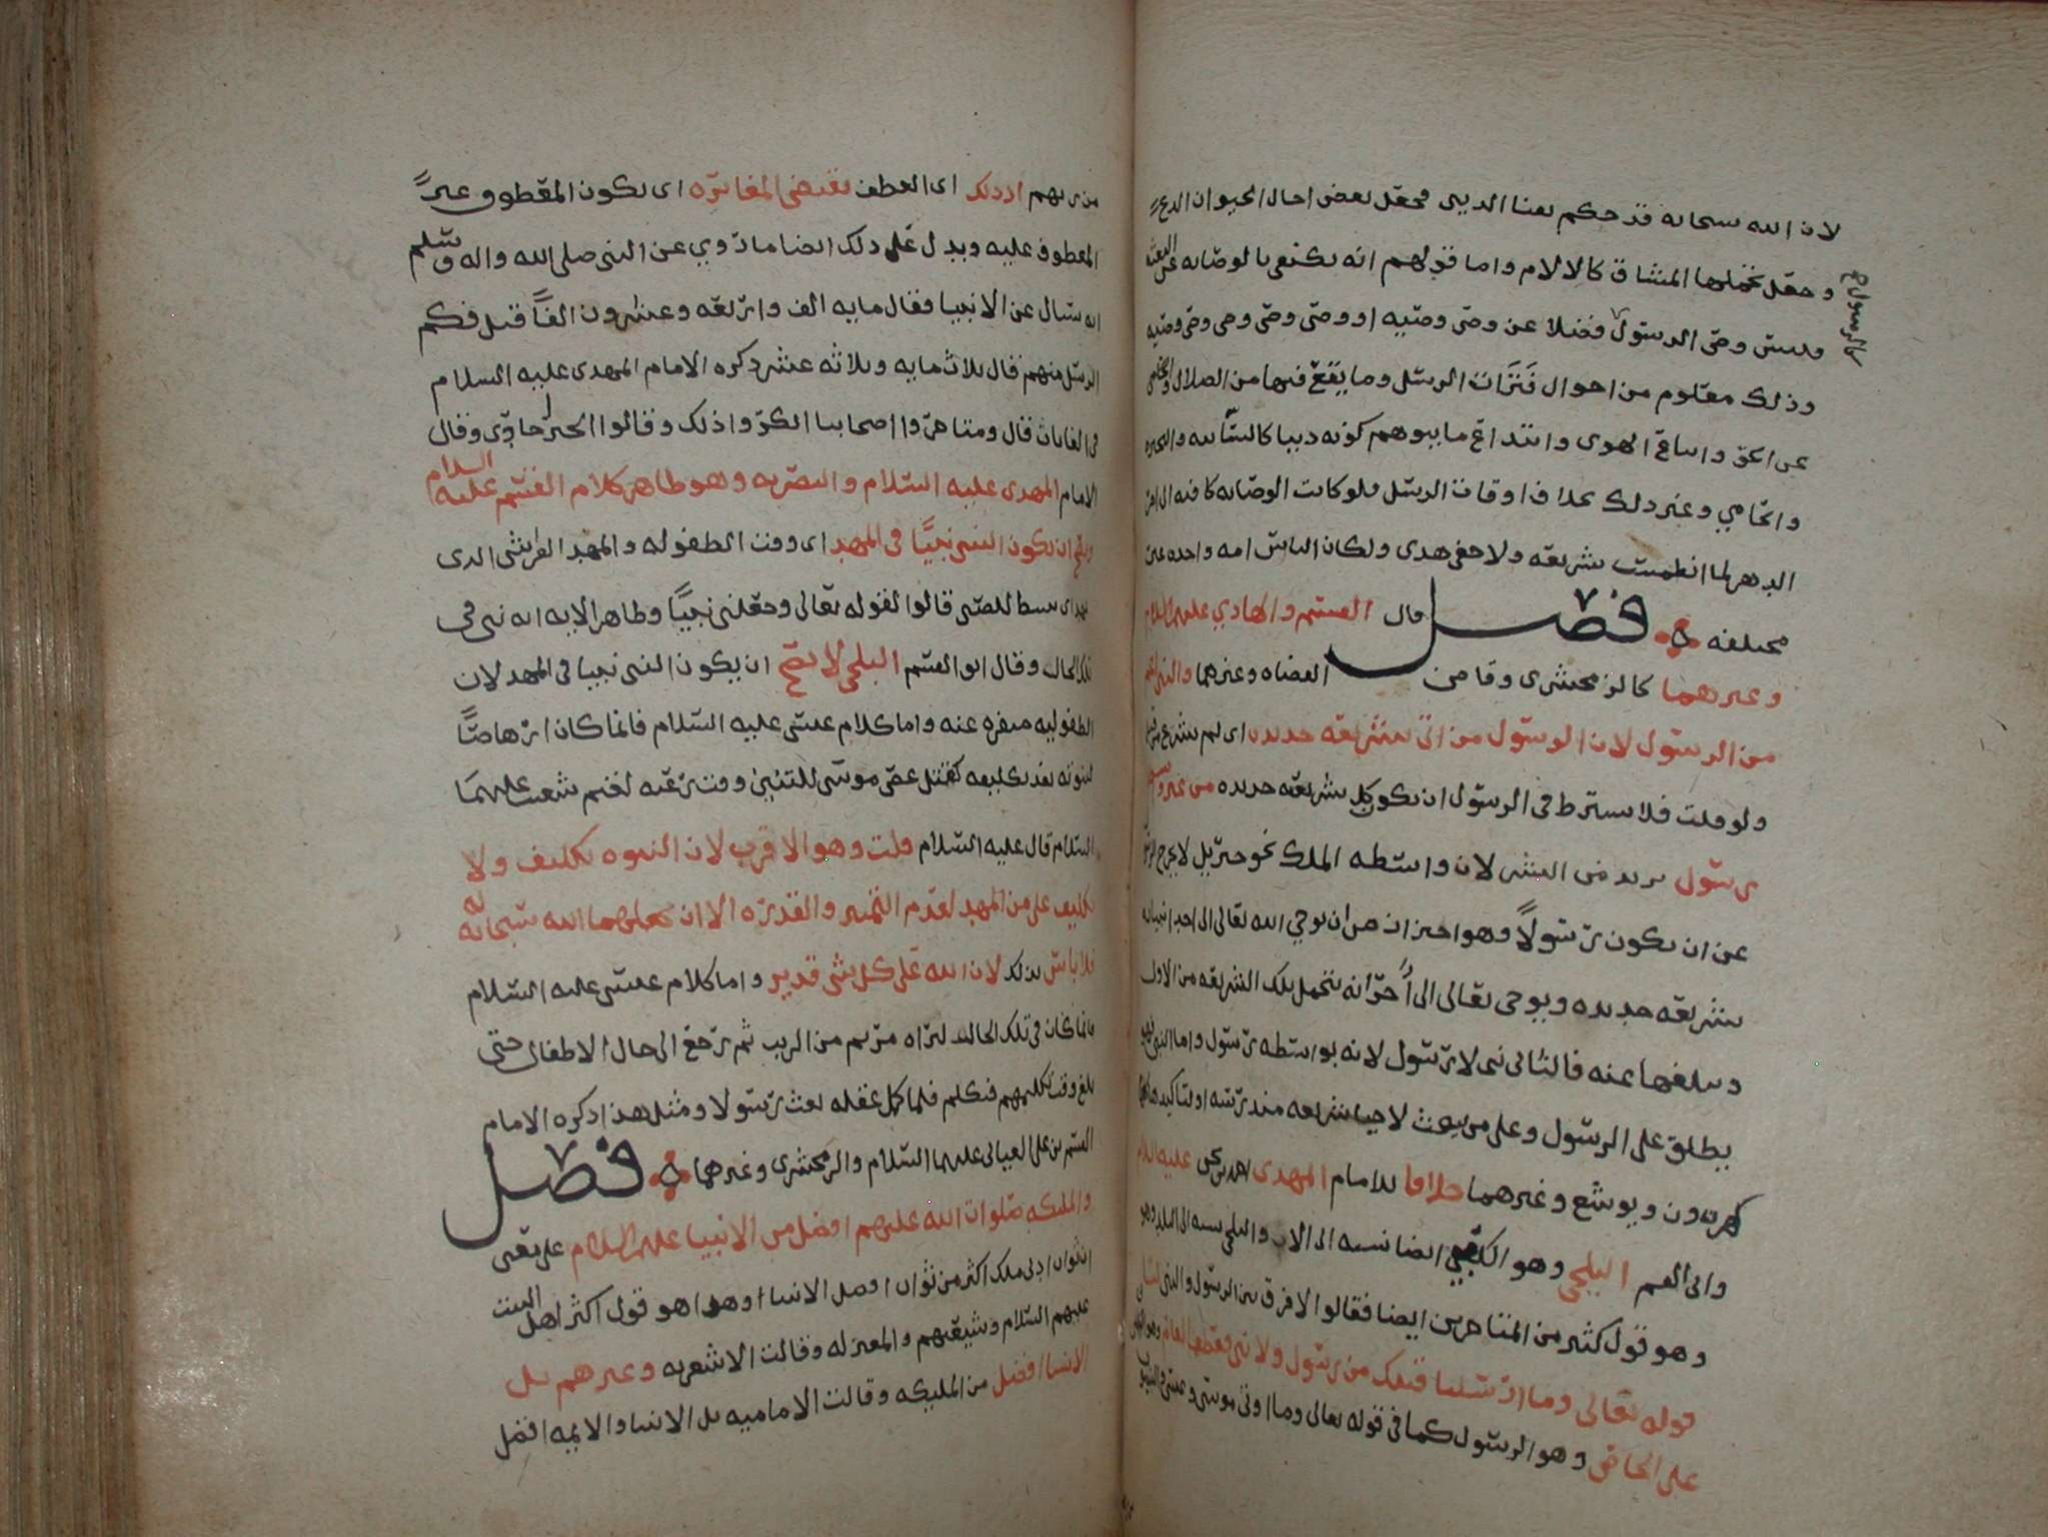 لان الله سبحانه قد حكم بعنا الدنيى فجعل بعض احال الحيوان الدع
وجعل تحملها المشاق كالالام واما قولهم انه يكتفي بالوصايه عن البعثه
وليس وصي الرسول فضلا عن وصي وصيه او وصي وصي وصي وصي وصيه
كالرسول ح
وذلك معلوم من احوال فترات الرسل وما يقع فيها من الضلال
عن الحق واتباع الهوى وابتداع ما يوهم كونه دينا كالسائبه والبحيره
والحامي وغير ذلك بخلاف اوقات الرسل ولو كانت الوصايه كافيه الى اخر
الدهر لما انطمست شريعه ولا خفي هدى ولكان الناس امه واحده غير
مختلفه فصل قال القسم والهادي عليهما السلام
وغيرهما كالزمخشري وقاضي القضاه وغيرهما والنبي اعم
من الرسول لان الرسول من اتى بشريعه جديده اى لم
ولو قلت فلا يشترط في الرسول ان يكون كل شريعته جديده من غير واسطه
رسول يريد من البشر لان واسطه الملك نحو جبريل لا يخرج الرسول
عن ان يكون رسولاً وهو احتراز من ان يوحي الله تعالى الى احد انبيائه
بشريعه جديده ويوحي تعالى الى اخر انه يتحمل تلك الشريعه من الاول
ويبلغها عنه فالثاني نبي لا رسول لانه بواسطه رسول واما النبي فهو
يطلق على الرسول وعلى من بعث لاحيا شريعه مندرسه او لتاكيدها
كهرون ويوشع وغيرهما خلافا للامام المهدي احمد بن يحيى عليه السلام
وابي القسم البلخي وهو الكعبي ايضا نسبه الى الاب والبلخي نسبه الى البلد وهو
وهو قول كثير من المتاخرين ايضا فقالوا لا فرق بين الرسول والنبي لنا
قوله تعالى وما ارسلنا قبلك من رسول ولا نبي فعطف العام وهو النبي
على الخاص وهو الرسول كما في قوله تعالى وما اوتي موسى وعيسى والنبيون
من ربهم اذ ذلك اى العطف يقتضي المغايره اى يكون المعطوف غير
المعطوف عليه ويدل على ذلك ايضا ما روي عن النبي صلى الله واله وسلم
انه سئال عن الانبيا فقال مايه الف واربعه وعشرون الفاً قيل فكم
الرسل منهم قال ثلاث مايه وثلاثه عشر ذكره الامام المهدي عليه السلام
في الغايات قال ومتاخروا اصحابنا انكروا ذلك وقالوا الخبر احادي وقال
الامام المهدي عليه السلام والبصريه وهو ظاهر كلام القسم عليه السلام
ويصح ان يكون النبي نبيًا في المهد اى وقت الطفوله والمهد الفراش الذي
يمهد اى يبسط للصبي قالوا لقوله تعالى وجعلني نبيًا وظاهر الايه انه نبي في
تلك الحال وقال ابو القسم البلخي لا يصح ان يكون النبي نبيا في المهد لان
الطفوليه منفره عنه واما كلام عيسى عليه السلام فانما كان ارهاصًا
لنبوته بعد تكليفه كقتل عصى موسى للتنين وقت رعيه لغنم شعيب عليهما
السلام قال عليه السلام قلت وهو الاقرب لان النبوه تكليف ولا
تكليف على من في المهد لعدم التمييز والقدره الا ان يجعلهما الله سبحانه له
فلا باس بذلك لان الله على كل شي قدير واما كلام عيسى عليه السلام
فانما كان في تلك الحال لبراه مريم من الريب ثم رجع الى حال الاطفال حتى
بلغ وقت تكليمهم فتكلم فلما كمل عقله بعث رسولا ومثل هذا ذكره الامام
القسم بن علي العياني عليهما السلام والزمخشري وغيرهما فصل
والمليكه صلوات الله عليهم افضل من الانبيا عليهم السلام على معنى
ان ثواب ادنى ملك اكثر من ثواب افضل الانبيا وهذا هو قول اكثر اهل البيت
عليهم السلام وشيعتهم والمعتزله وقالت الاشعريه وغيرهم بل
الانبيا افضل من المليكه وقالت الاماميه بل الانبيا والايمه افضل